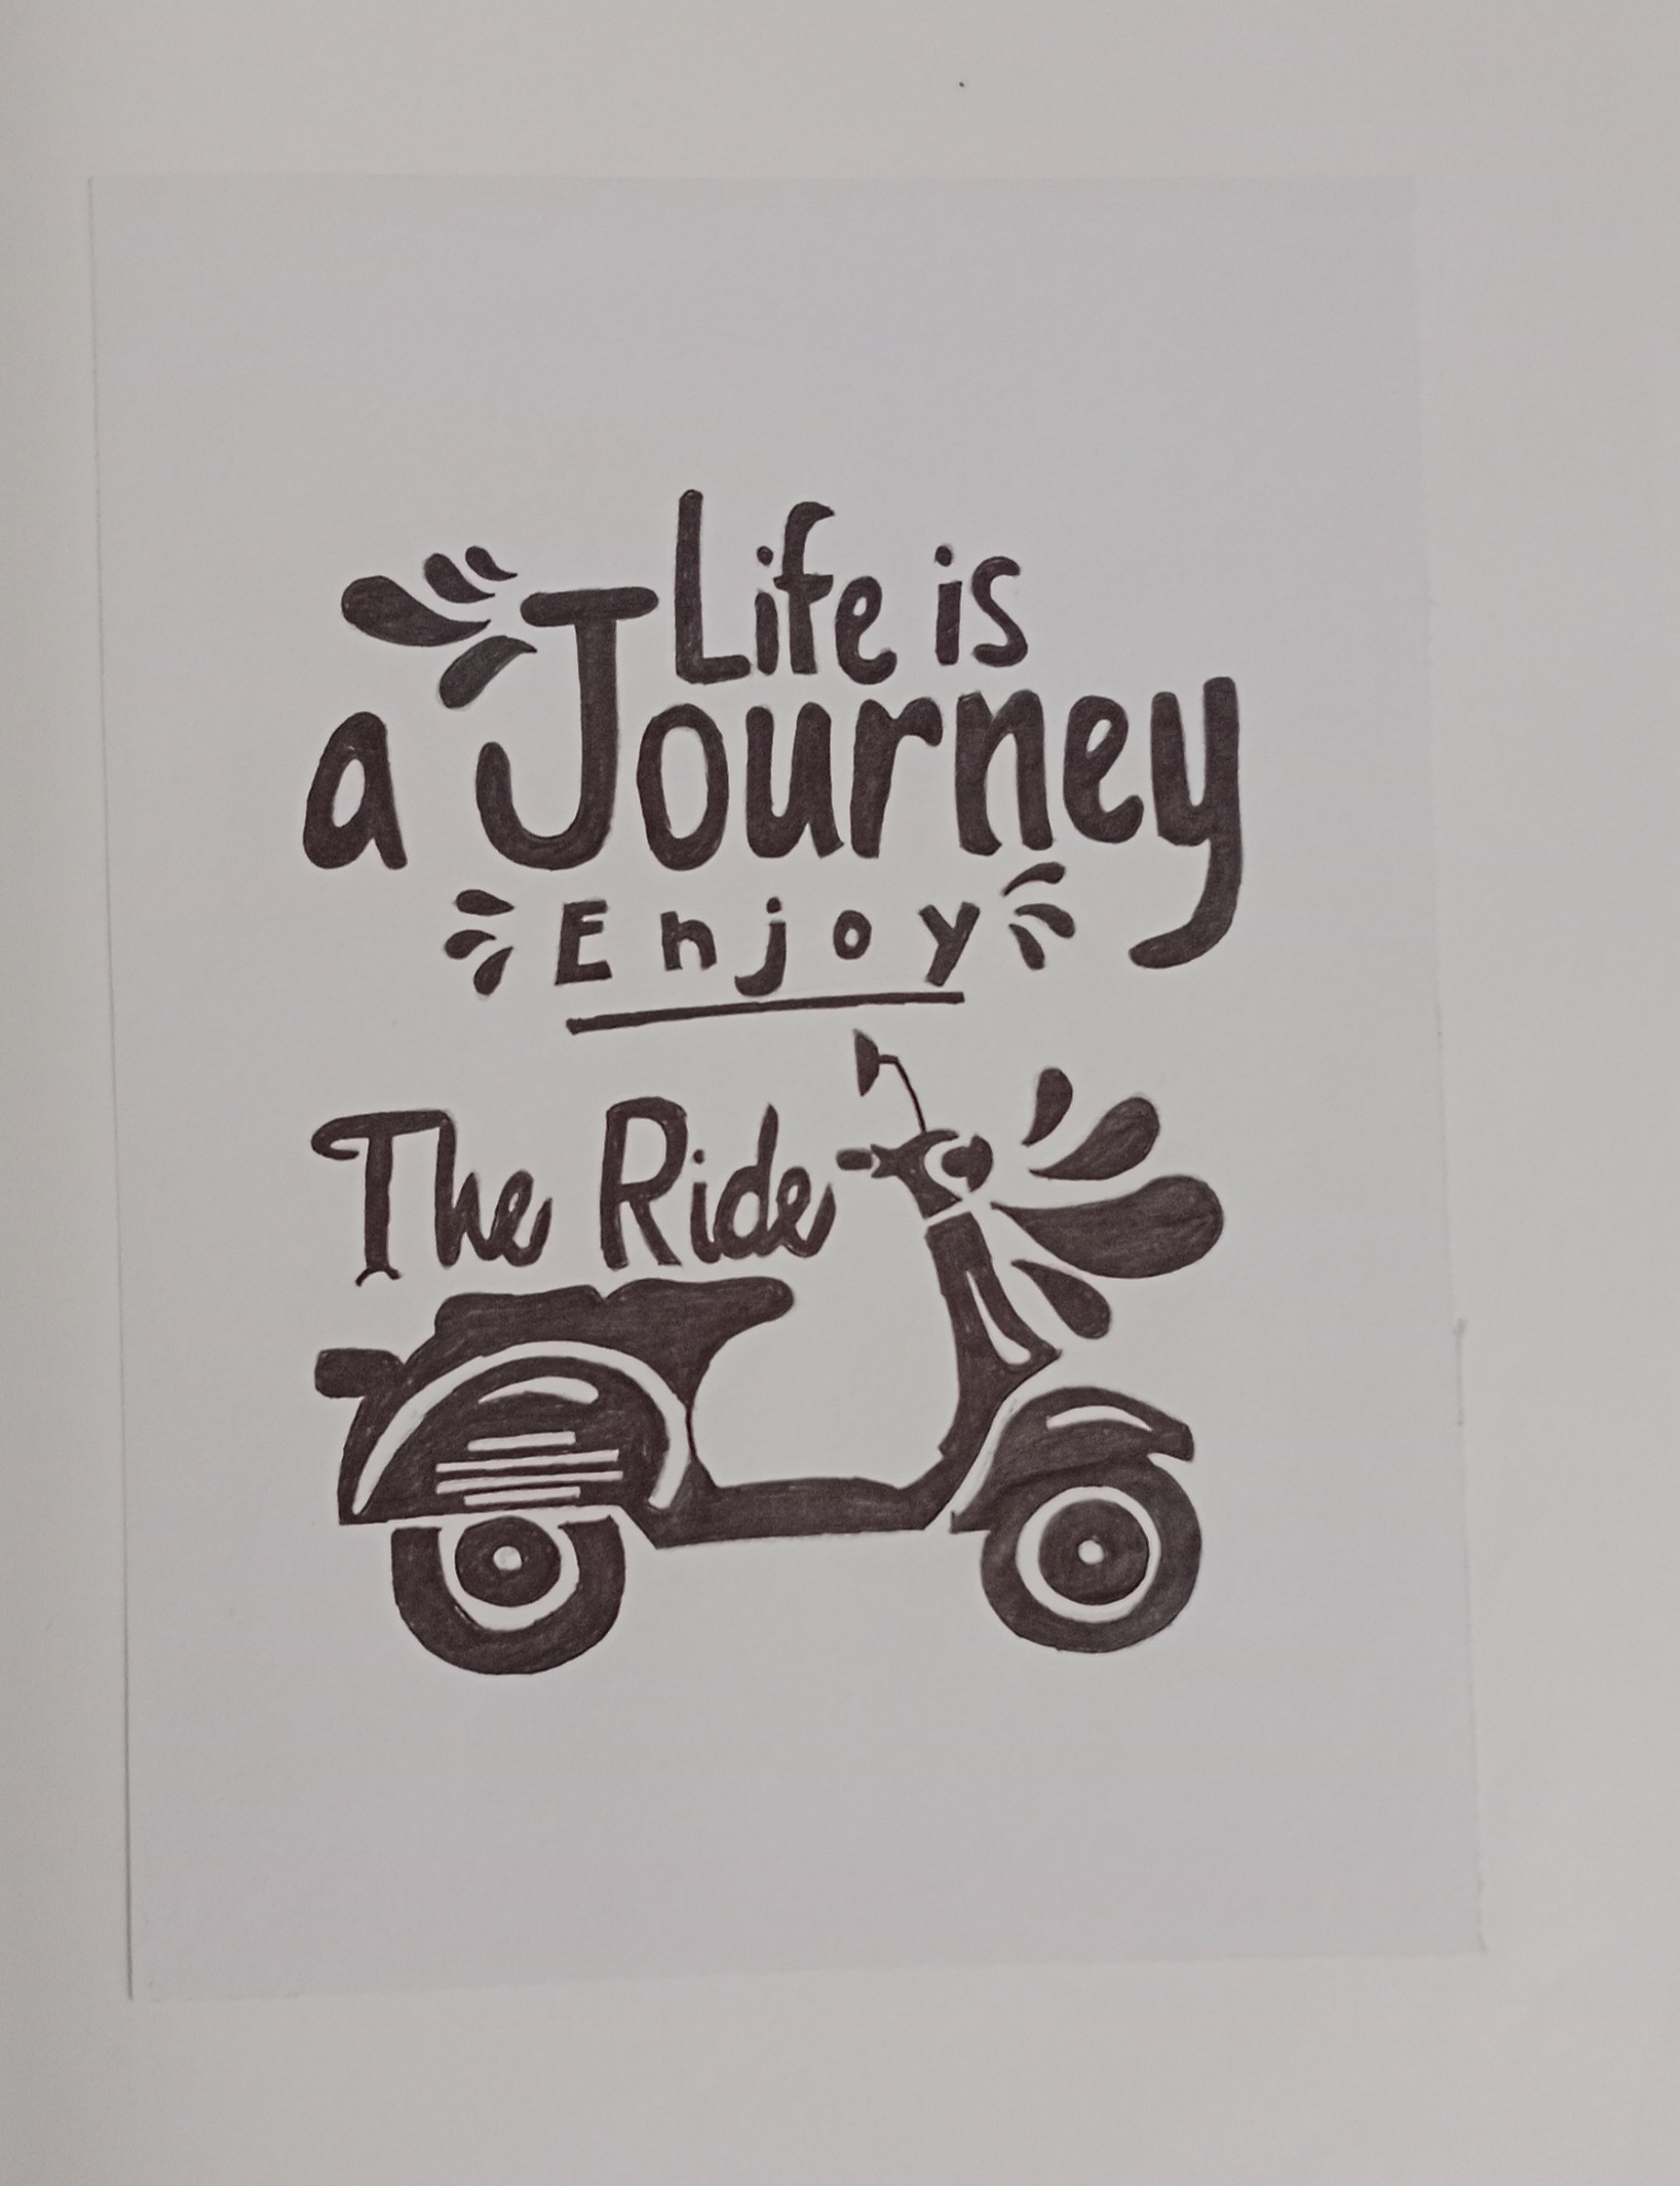 Life is
a Journey
Enjoy
The Ride